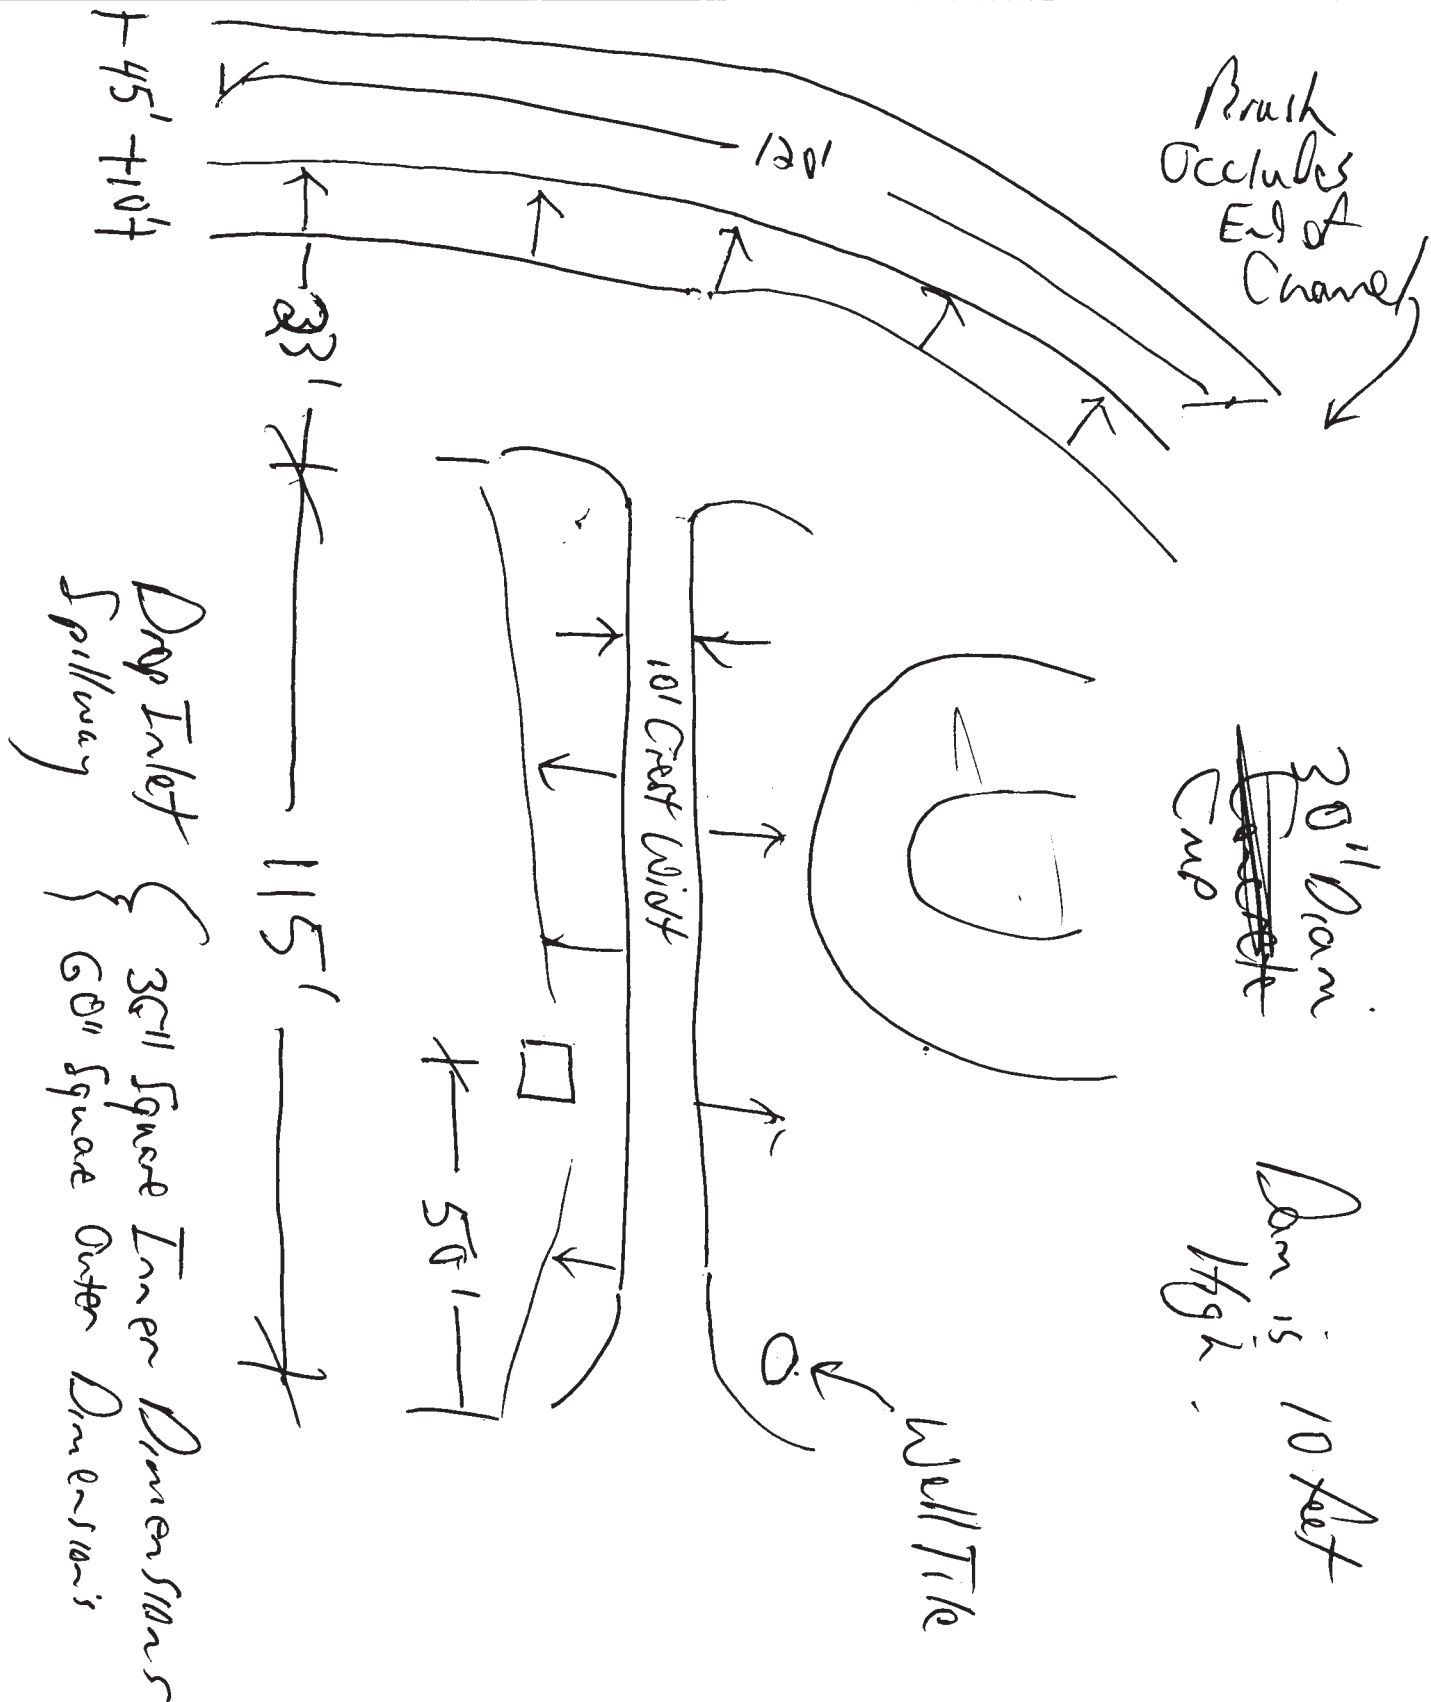 Brush
Occludes
End of
Channel
120'
45'
10'
33'
115'
50'
10' Crest Widt
30" Diam.
Cmp
Dam is 10 feet
High.
Well Tile
Drop Inlet
Spillway
36" Square Inner Dimensions
60" Square Outer Dimensions